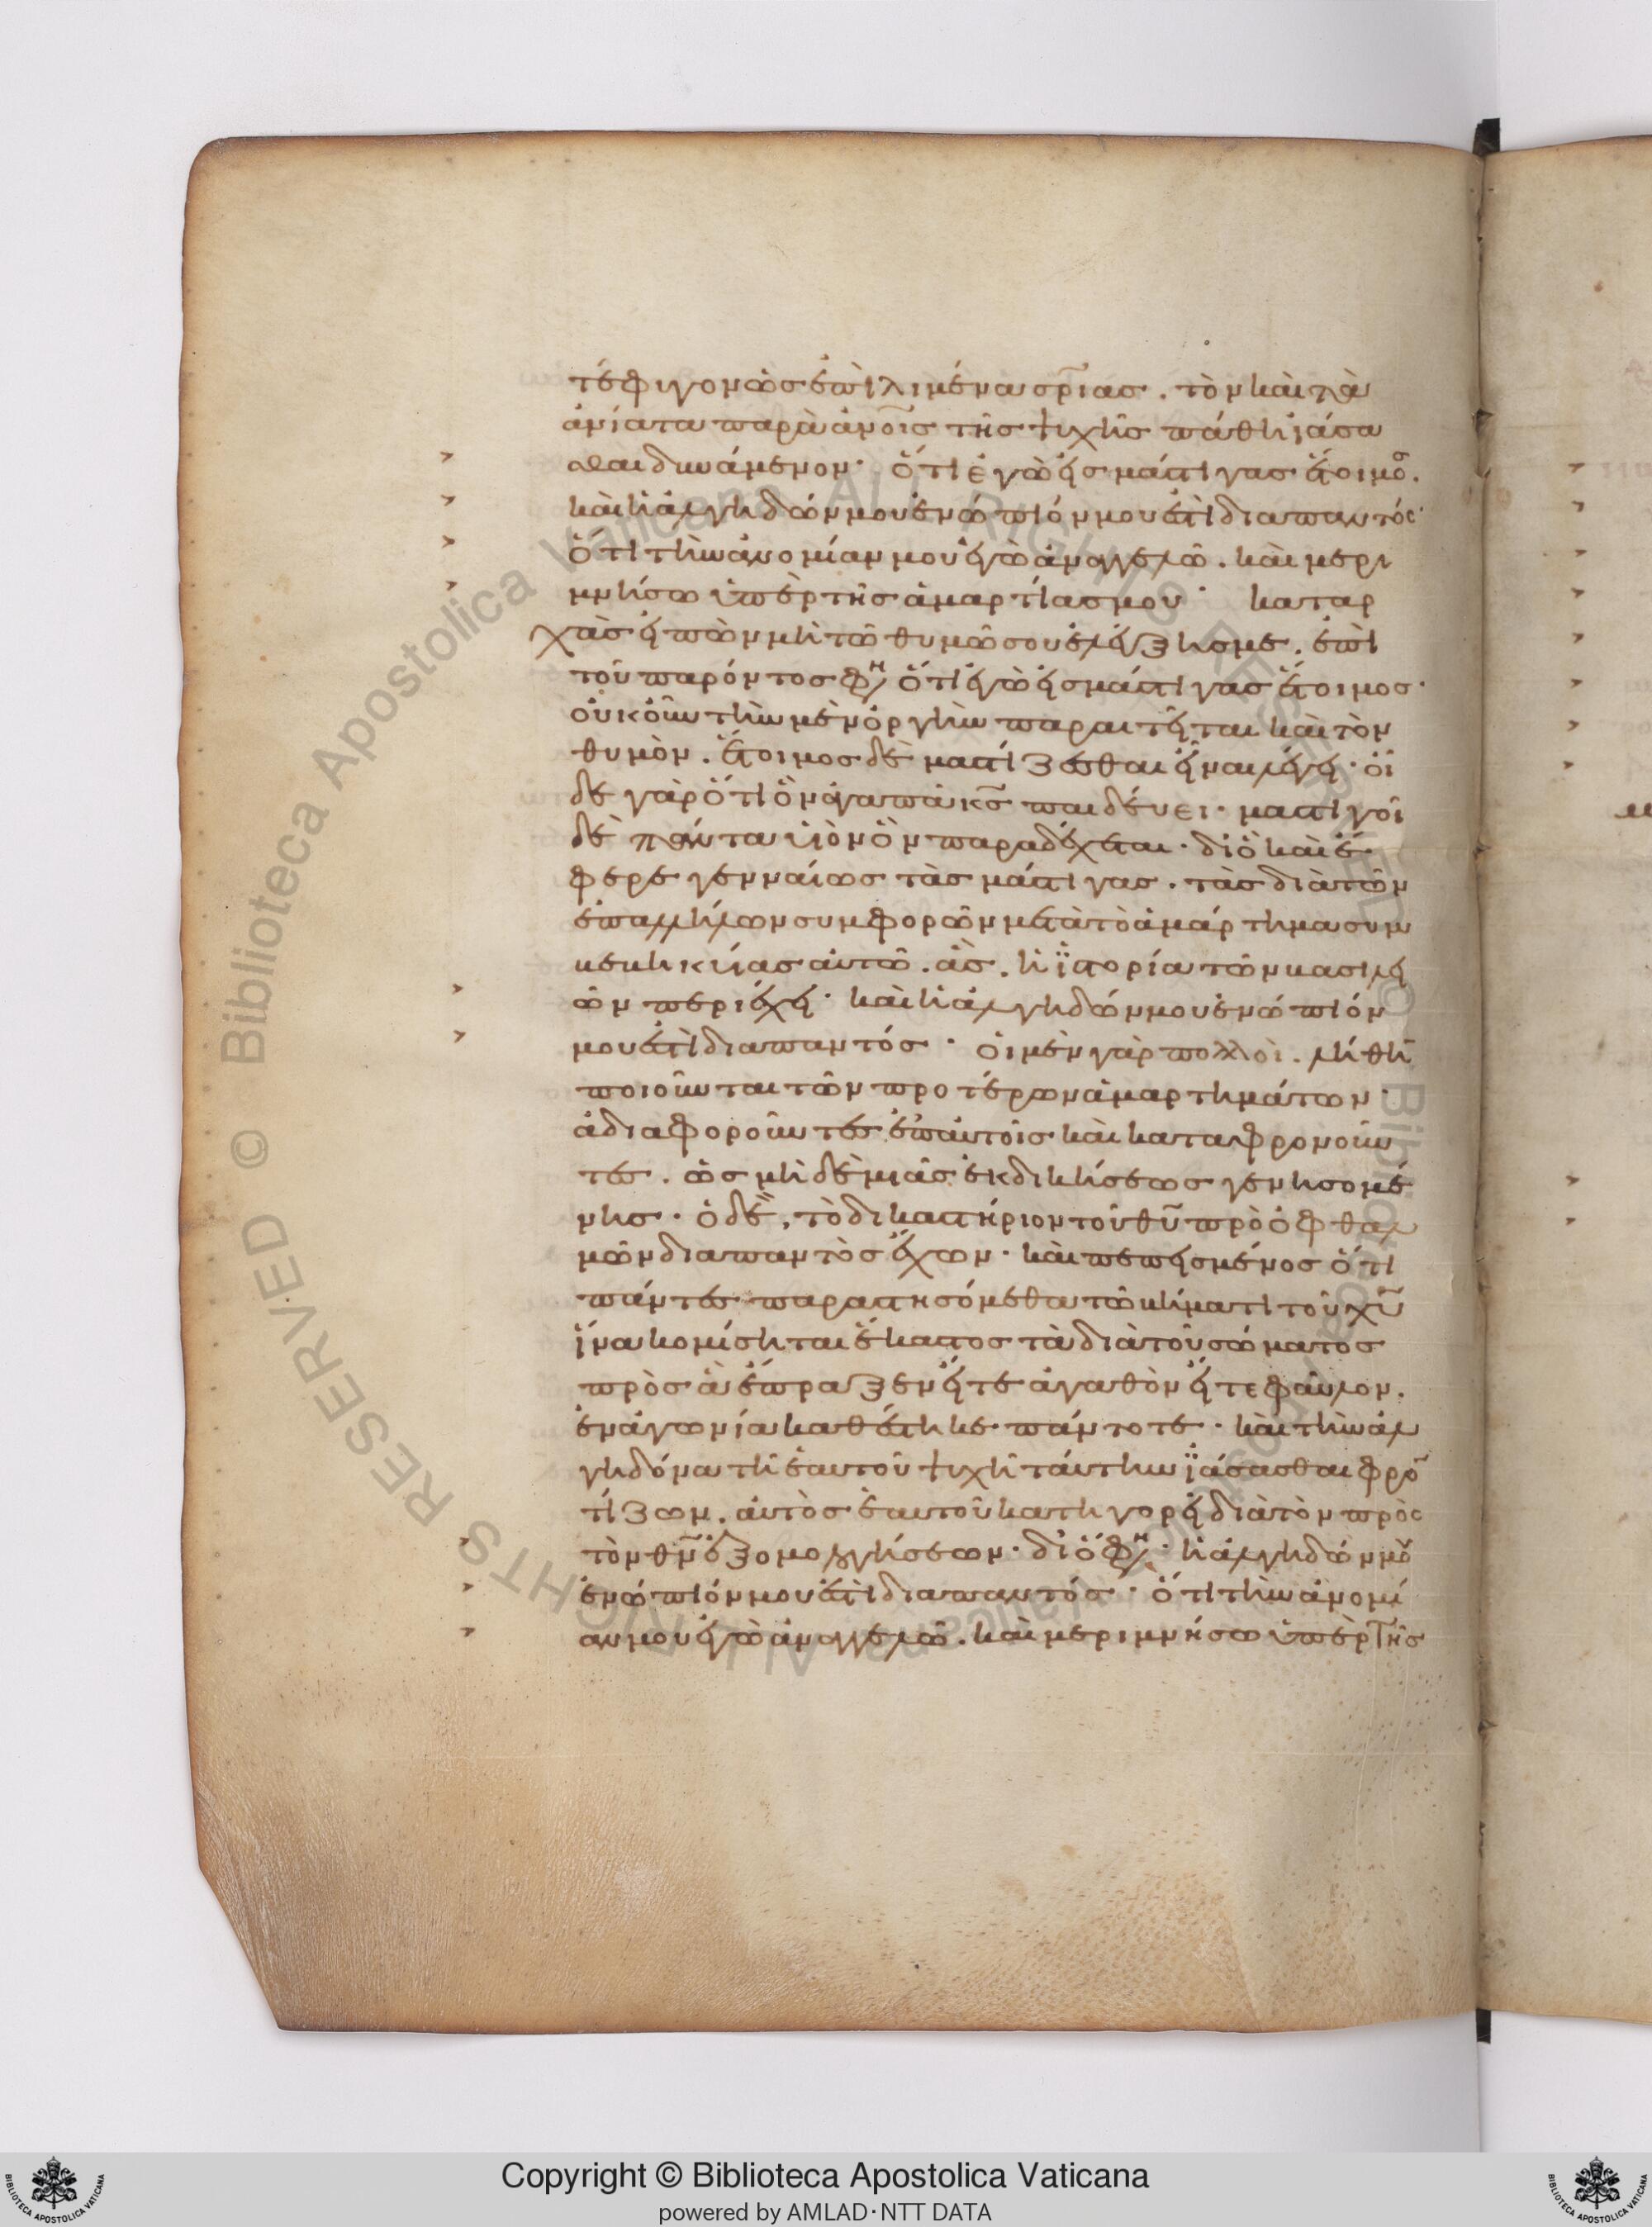 τέφυγον ὡς ἐπὶ λιμένα σρίας. τὸν καὶ τὰ
ἀνίατα παρὰ ἀνοις τῆς ψυχῆς πάθη ἰάσα
σθαι δυνάμενον· ὅτι ἐγὼ εἰς μάστιγας ἕτοιμο.
καὶ ἡ ἀλγηδών μου ἐνώπιόν μου ἐστὶ διαπαντός·
ὅτι τὴν ἀνομίαν μου ἐγὼ ἀναγγελῶ. καὶ μερι
μνήσω ὑπὲρ τῆς ἁμαρτίας μου· καταρ
χὰς εἰπὼν μὴ τῶ θυμῶ σου ἐλέγξης με. ἐπὶ
τοῦ παρόντος φη ὅτι ἐγὼ εἰς μάστιγας ἕτοιμος·
οὐκοῦν τὴν μὲν ὀργὴν παραιτεῖται καὶ τὸν
θυμὸν. ἕτοιμος δὲ μαστίζεσθαι εἶναι λέγει· οἶ
δε γὰρ ὅτι ὃν ἀγαπᾶ κς παιδεύει· μαστιγοῖ
δὲ πάντα υἱὸν ὃν παραδέχεται· διὸ καὶ ἔ
φερε γενναίως τὰς μάστιγας. τὰς διὰ τῶν
ἐπαλλήλων συμφορῶν μετὰ τὸ ἁμάρτημα συμ
βεβηκυίας αὐτῶ. ἃς, ἡ ἱστορία τῶν βασιλει
ῶν περιέχει· καὶ ἡ ἀλγηδών μου ἐνώπιόν
μου ἐστὶ διαπαντός· οἱ μὲν γὰρ πολλοὶ. λήθη
ποιοῦνται τῶν προτέρων ἁμαρτημάτων·
ἀδιαφοροῦντες ἐπαυτοῖς καὶ καταφρονοῦν
τες. ὡς μὴ δὲ μιᾶς ἐκδικήσεως γενησομέ
νης· ὁ δὲ, τὸ δικαστήριον τοῦ θυ πρὸ ὀφθαλ
μῶν διαπαντὸς ἔχων· καὶ πεπεισμένος ὅτι
πάντες παραστησόμεθα τῶ βήματι τοῦ χυ
ἵνα κομίσηται ἕκαστος τὰ διὰ τοῦ σώματος
πρὸς ἃ ἔπραξεν εἴτε ἀγαθὸν εἴτε φαῦλον.
ἐν ἀγωνία καθέστηκε πάντοτε· καὶ τὴν ἀλ
γηδόνα τῆ ἑαυτοῦ ψυχῆ ταύτην ἰάσασθαι φρο
τίζων. αὐτὸς ἑαυτοῦ κατηγορεῖ διὰ τὸν πρὸς
τὸν θν ἐξομολογήσεων· διό φη· ἡ ἀλγηδών μου
ἐνώπιόν μου ἐστὶ διαπαντός· ὅτι τὴν ἀνομί
αν μου ἐγὼ ἀναγγελῶ. καὶ μεριμνήσω ὑπὲρ τῆς
Copyright © Biblioteca Apostolica Vaticana
powered by AMLAD·NTT DATA